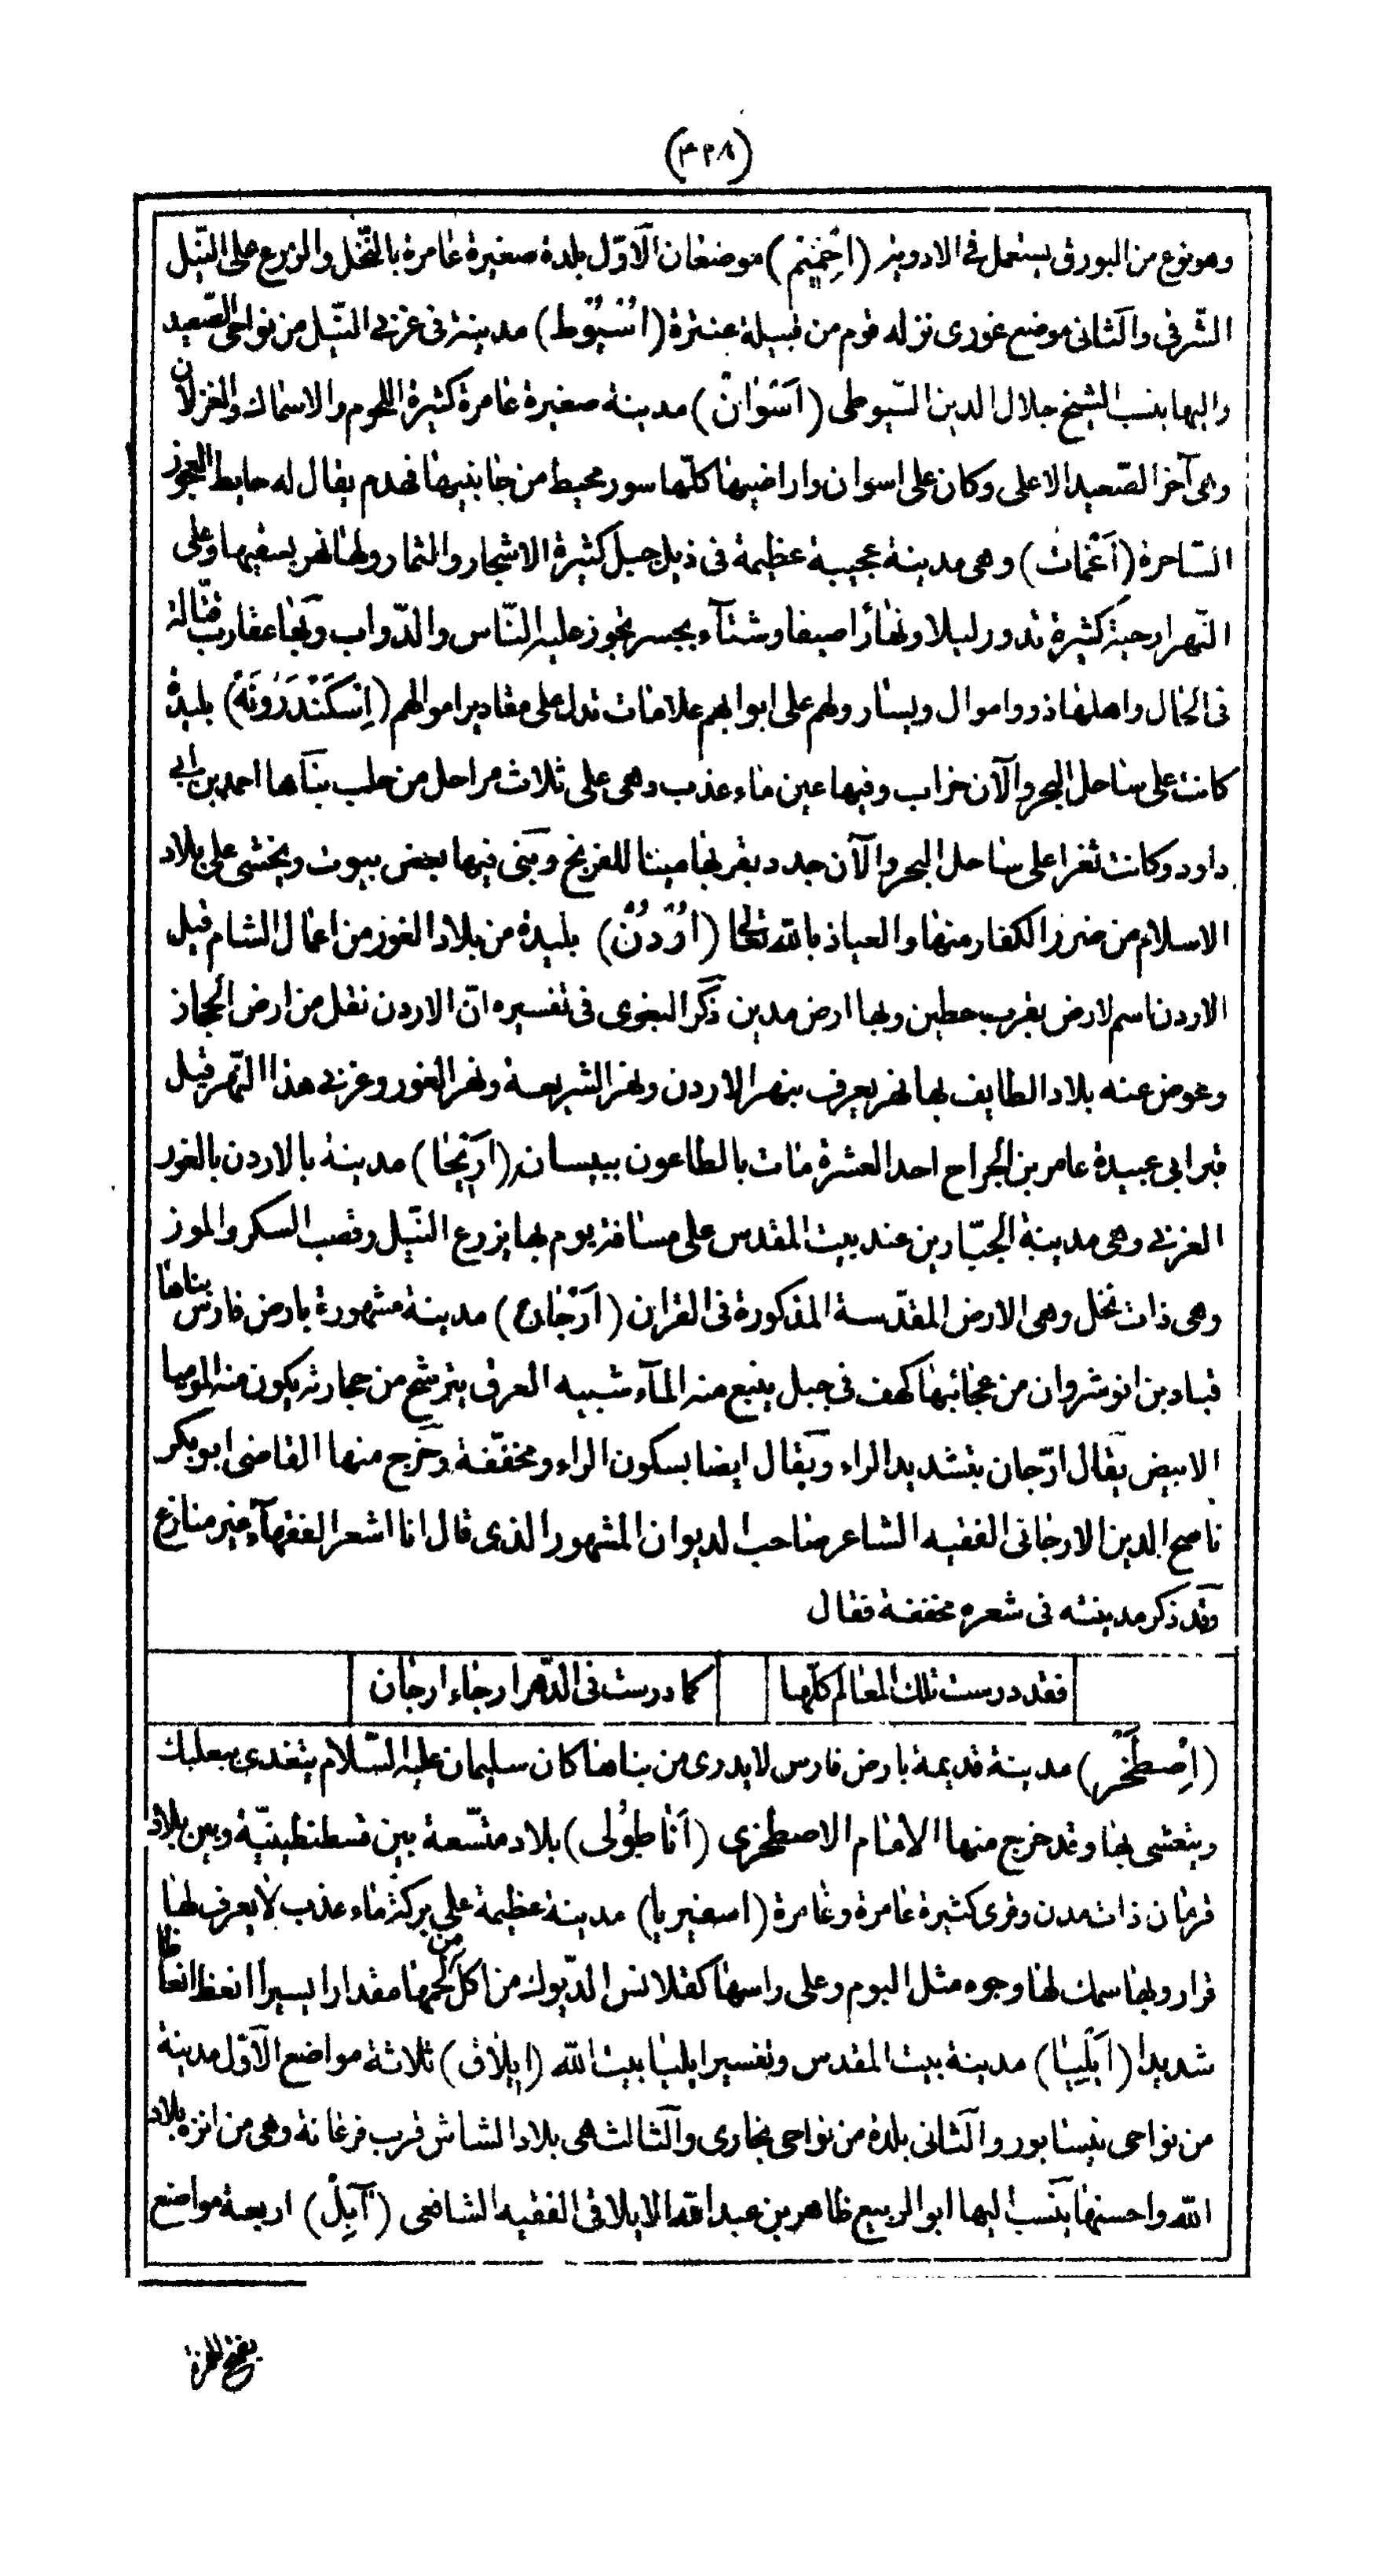 (٤٢٨)
وهو نوع من البورق يستعمل في الادوية (اخميم) موضعان الآوّل بلدة صغيرة عامرة بالنّخل والزرع على النّيل
الشّرقي والثاني موضع غورى نزله قوم من قبيلة عنترة (اسيوط) مدينة فى غربي النّيل من نواحى الصّعيد
واليها ينسب الشيخ جلال الدين السّيوطى (اسوان) مدينة صغيرة عامرة كثيرة اللحوم والاسماك والغزلان
وهى آخر الصّعيد الاعلى وكان على اسوان واراضيها كلّها سور محيط من جانبيها فهدم يقال له حايط العجوز
السّاحرة (اَغْمات) وهى مدينة عجيبة عظيمة فى ذيل جبل كثيرة الاشجار والثمار ولها نهر يسقيها وعلى
النّهر ارحية كثيرة تدور ليلا ونهارًا صيفا وشتآء بجسر تجوز عليه النّاس والدّواب وبها عقارب قتّالة
فى الحال واهلها ذوو اموال ويسار ولهم على ابوابهم علامات تدل على مقادير اموالهم (اِسكَنْدَرُونَة) بليدة
كانت على ساحل البحر والآن خراب وفيها عين ماء عذب وهى على ثلاث مراحل من حلب بناها احمد بن ابي
داود وكانت ثغرا على ساحل البحر والآن جدد بقربها مينا للفرنج وبنى فيها بعض بيوت ويخشى على بلاد
الاسلام من ضرر الكفار منها والعياذ بالله تعالى (اُرْدُنّ) بليدة من بلاد الغور من اعمال الشام قيل
الاردن اسم لارض بقرب حطين وبها ارض مدين ذكر البغوى فى تفسيره انّ الاردن نقل من ارض الحجاز
وعوض عنه بلاد الطايف بها نهر يعرف بنهر الاردن ونهر الشريعة ونهر الغور وغربي هذا النّهر قيل
قبر ابى عبيدة عامر بن الجراح احد العشرة مات بالطاعون ببيسان (اَرِيْحا) مدينة بالاردن بالغور
الغربي وهى مدينة الجبّارين عند بيت المقدس على مسافة يوم بها يزرع النّيل وقصب السكر والموز
وهى ذات نخل وهى الارض المقدّسة المذكورة فى القران (اَرّجان) مدينة مشهورة بارض فارس بناها
قباد بن انوشروان من عجائبها كهف فى جبل ينبع منه المآء شبيه العرق يترشح من حجارته يكون منه الموميا
الابيض يقال ارّجان بتشديد الراء ويقال ايضا بسكون الراء ومخففّة وخرج منها القاضى ابو بكر
ناصح الدين الارجانى الفقيه الشاعر صاحب الديوان المشهور الذى قال انا اشعر الفقهآء غير منازع
وقد ذكر مدينته فى شعره مخففة فقال
فقد درست تلك المعالم كلّها كما درست فى الدّهر ارجاء ارجان
(اِصْطَخْر) مدينة قديمة بارض فارس لا يدرى من بناها كان سليمان عليه السّلام يتغدى ببعلبك
ويتعشى بها وقد خرج منها الامام الاصطخرى (اَناطولى) بلاد متّسعة بين قسطنطينيّة وبين بلاد
قرمان ذات مدن وقرى كثيرة عامرة وغامرة (اسعير يا) مدينة عظيمة على بركة ماء عذب لا يعرف لها
قرار وبها سمك لها وجوه مثل البوم وعلى راسها كقلانس الدّيوك من اكل من لحمها مقدارا يسيرا انعظ انعاظا
شديدا (اِيلِيا) مدينة بيت المقدس وتفسير ايليا بيت الله (ايلاق) ثلاثة مواضع الآوّل مدينة
من نواحى نيسابور والثانى بلدة من نواحى بخارى والثالث هى بلاد الشاش قرب فرغانة وهى من انزه بلاد
الله واحسنها ينسب اليها ابو الربيع طاهر بن عبد الله الايلاقى الفقيه الشافعى (آبِل) اربعة مواضع
بفتح الهمزة